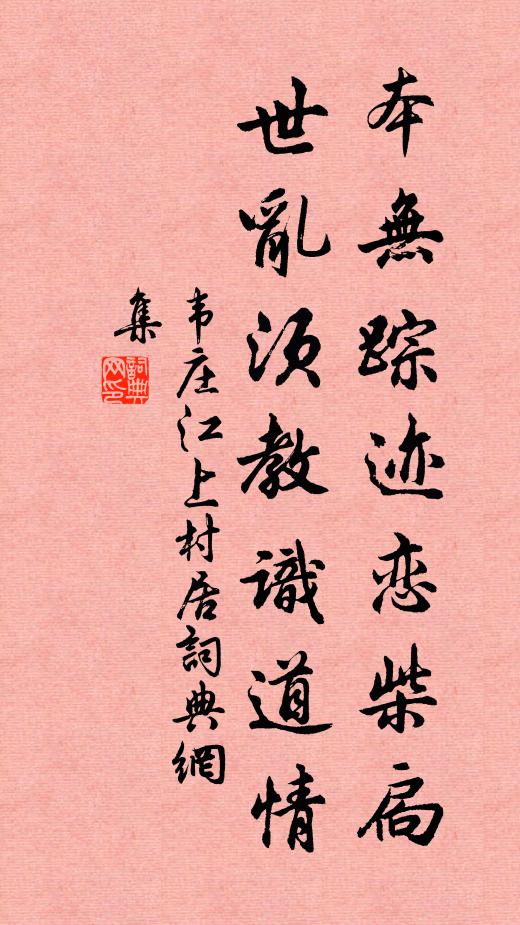 本無踪迹恋柴扃
世亂须教識道情
韦庄江上村居詞典網
集
詞典网印